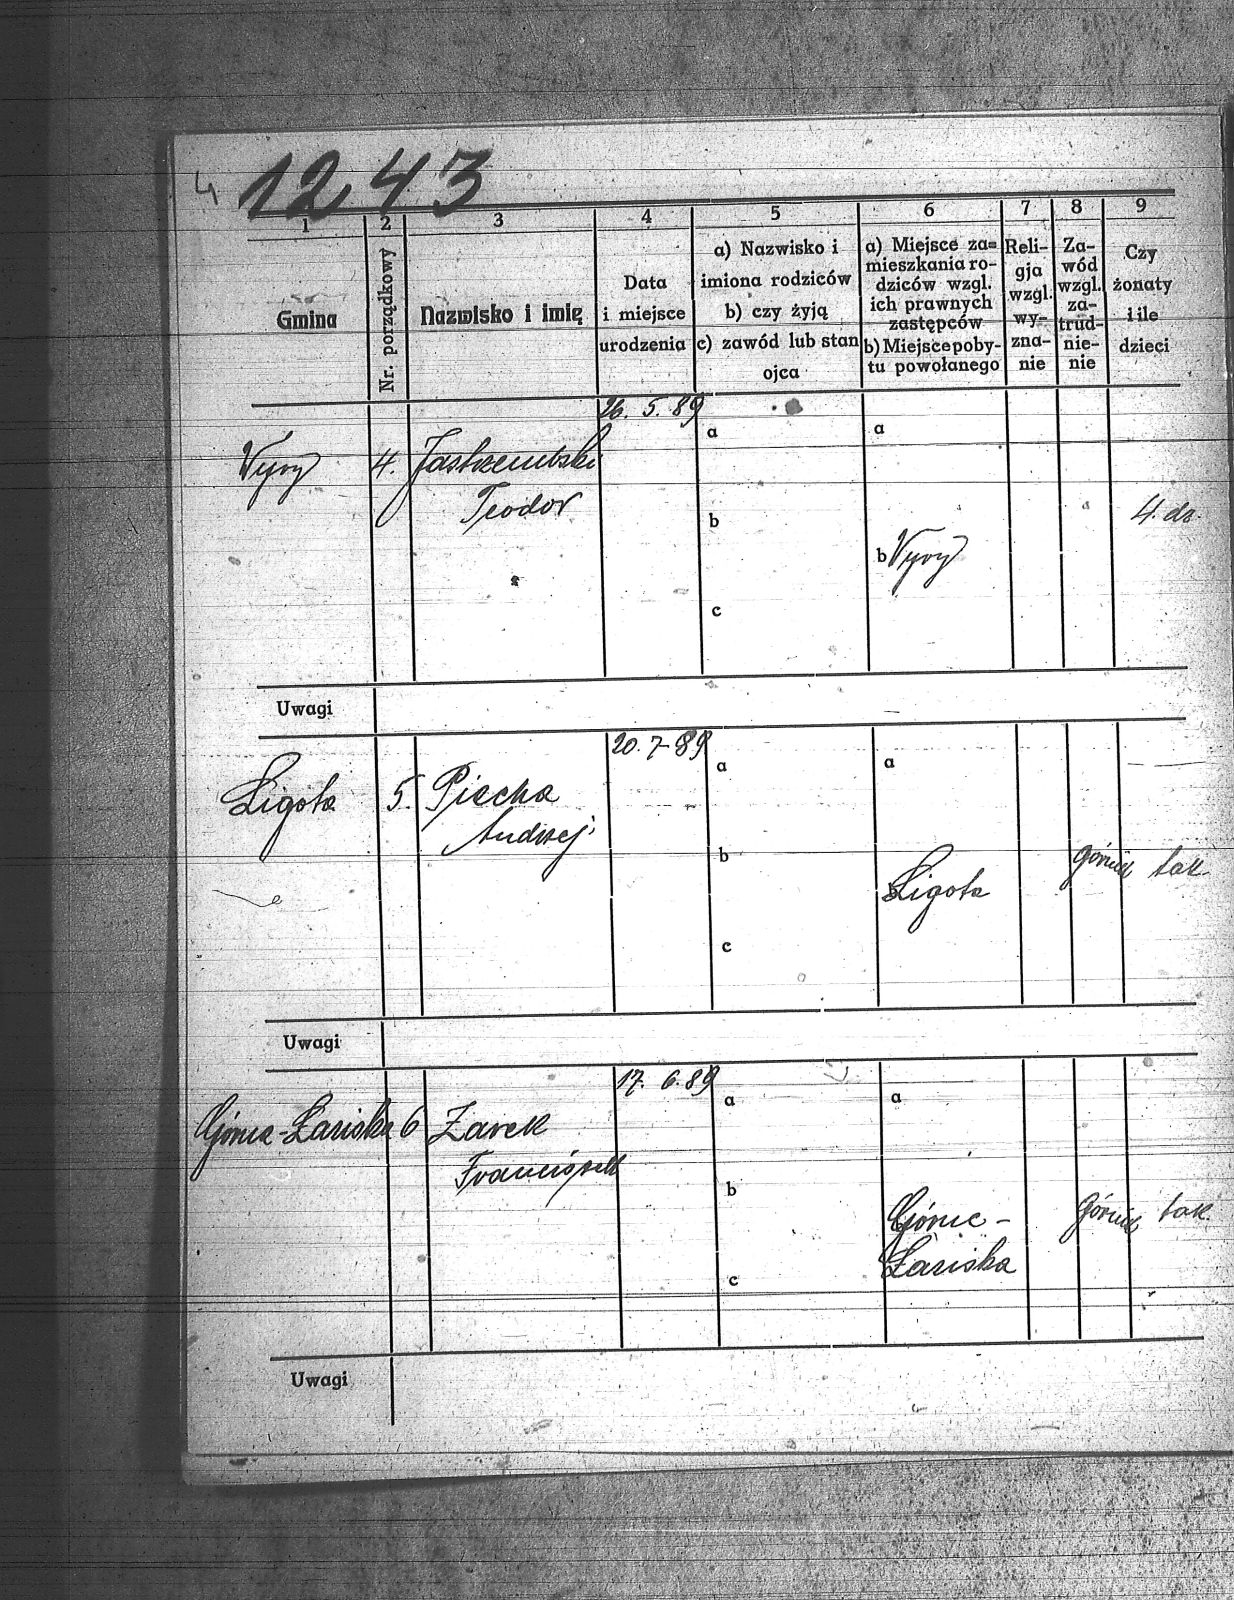 4 1243
1
2
3
4
5
6
7
8
9
Gmina
Nr. porządkowy
Nazwisko i imię
Data
i miejsce
urodzenia
a) Nazwisko i
imiona rodziców
b) czy żyją
c) zawód lub stan
ojca
a) Miejsce za=
mieszkania ro-
dziców wzgl.
ich prawnych
zastępców
b) Miejsce poby-
tu powołanego
Reli-
gja
wzgl.
wy-
zna-
nie
Za-
wód
wzgl.
za-
trud-
nie-
nie
Czy
żonaty
i ile
dzieci
26. 5. 89
Wyry 4. Jastrzembski
Teodor
a
b
c
a
b Wyry
4. dz.
Uwagi
20. 7 - 89
Ligota 5. Piecha
Andrzej
a
b
c
a
b Ligota
górnik tak
Uwagi
17. 6. 89
Górne-Łaziska 6 Żarek
Franciszek
a
b
c
a
b Górne-
Łaziska
Górnik tak
Uwagi